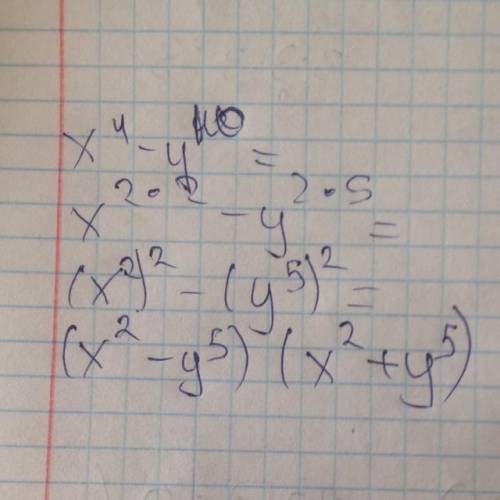 x⁴ - y¹⁰ =
x²•² - y²•⁵ =
(x²)² - (y⁵)² =
(x² - y⁵) (x² + y⁵)